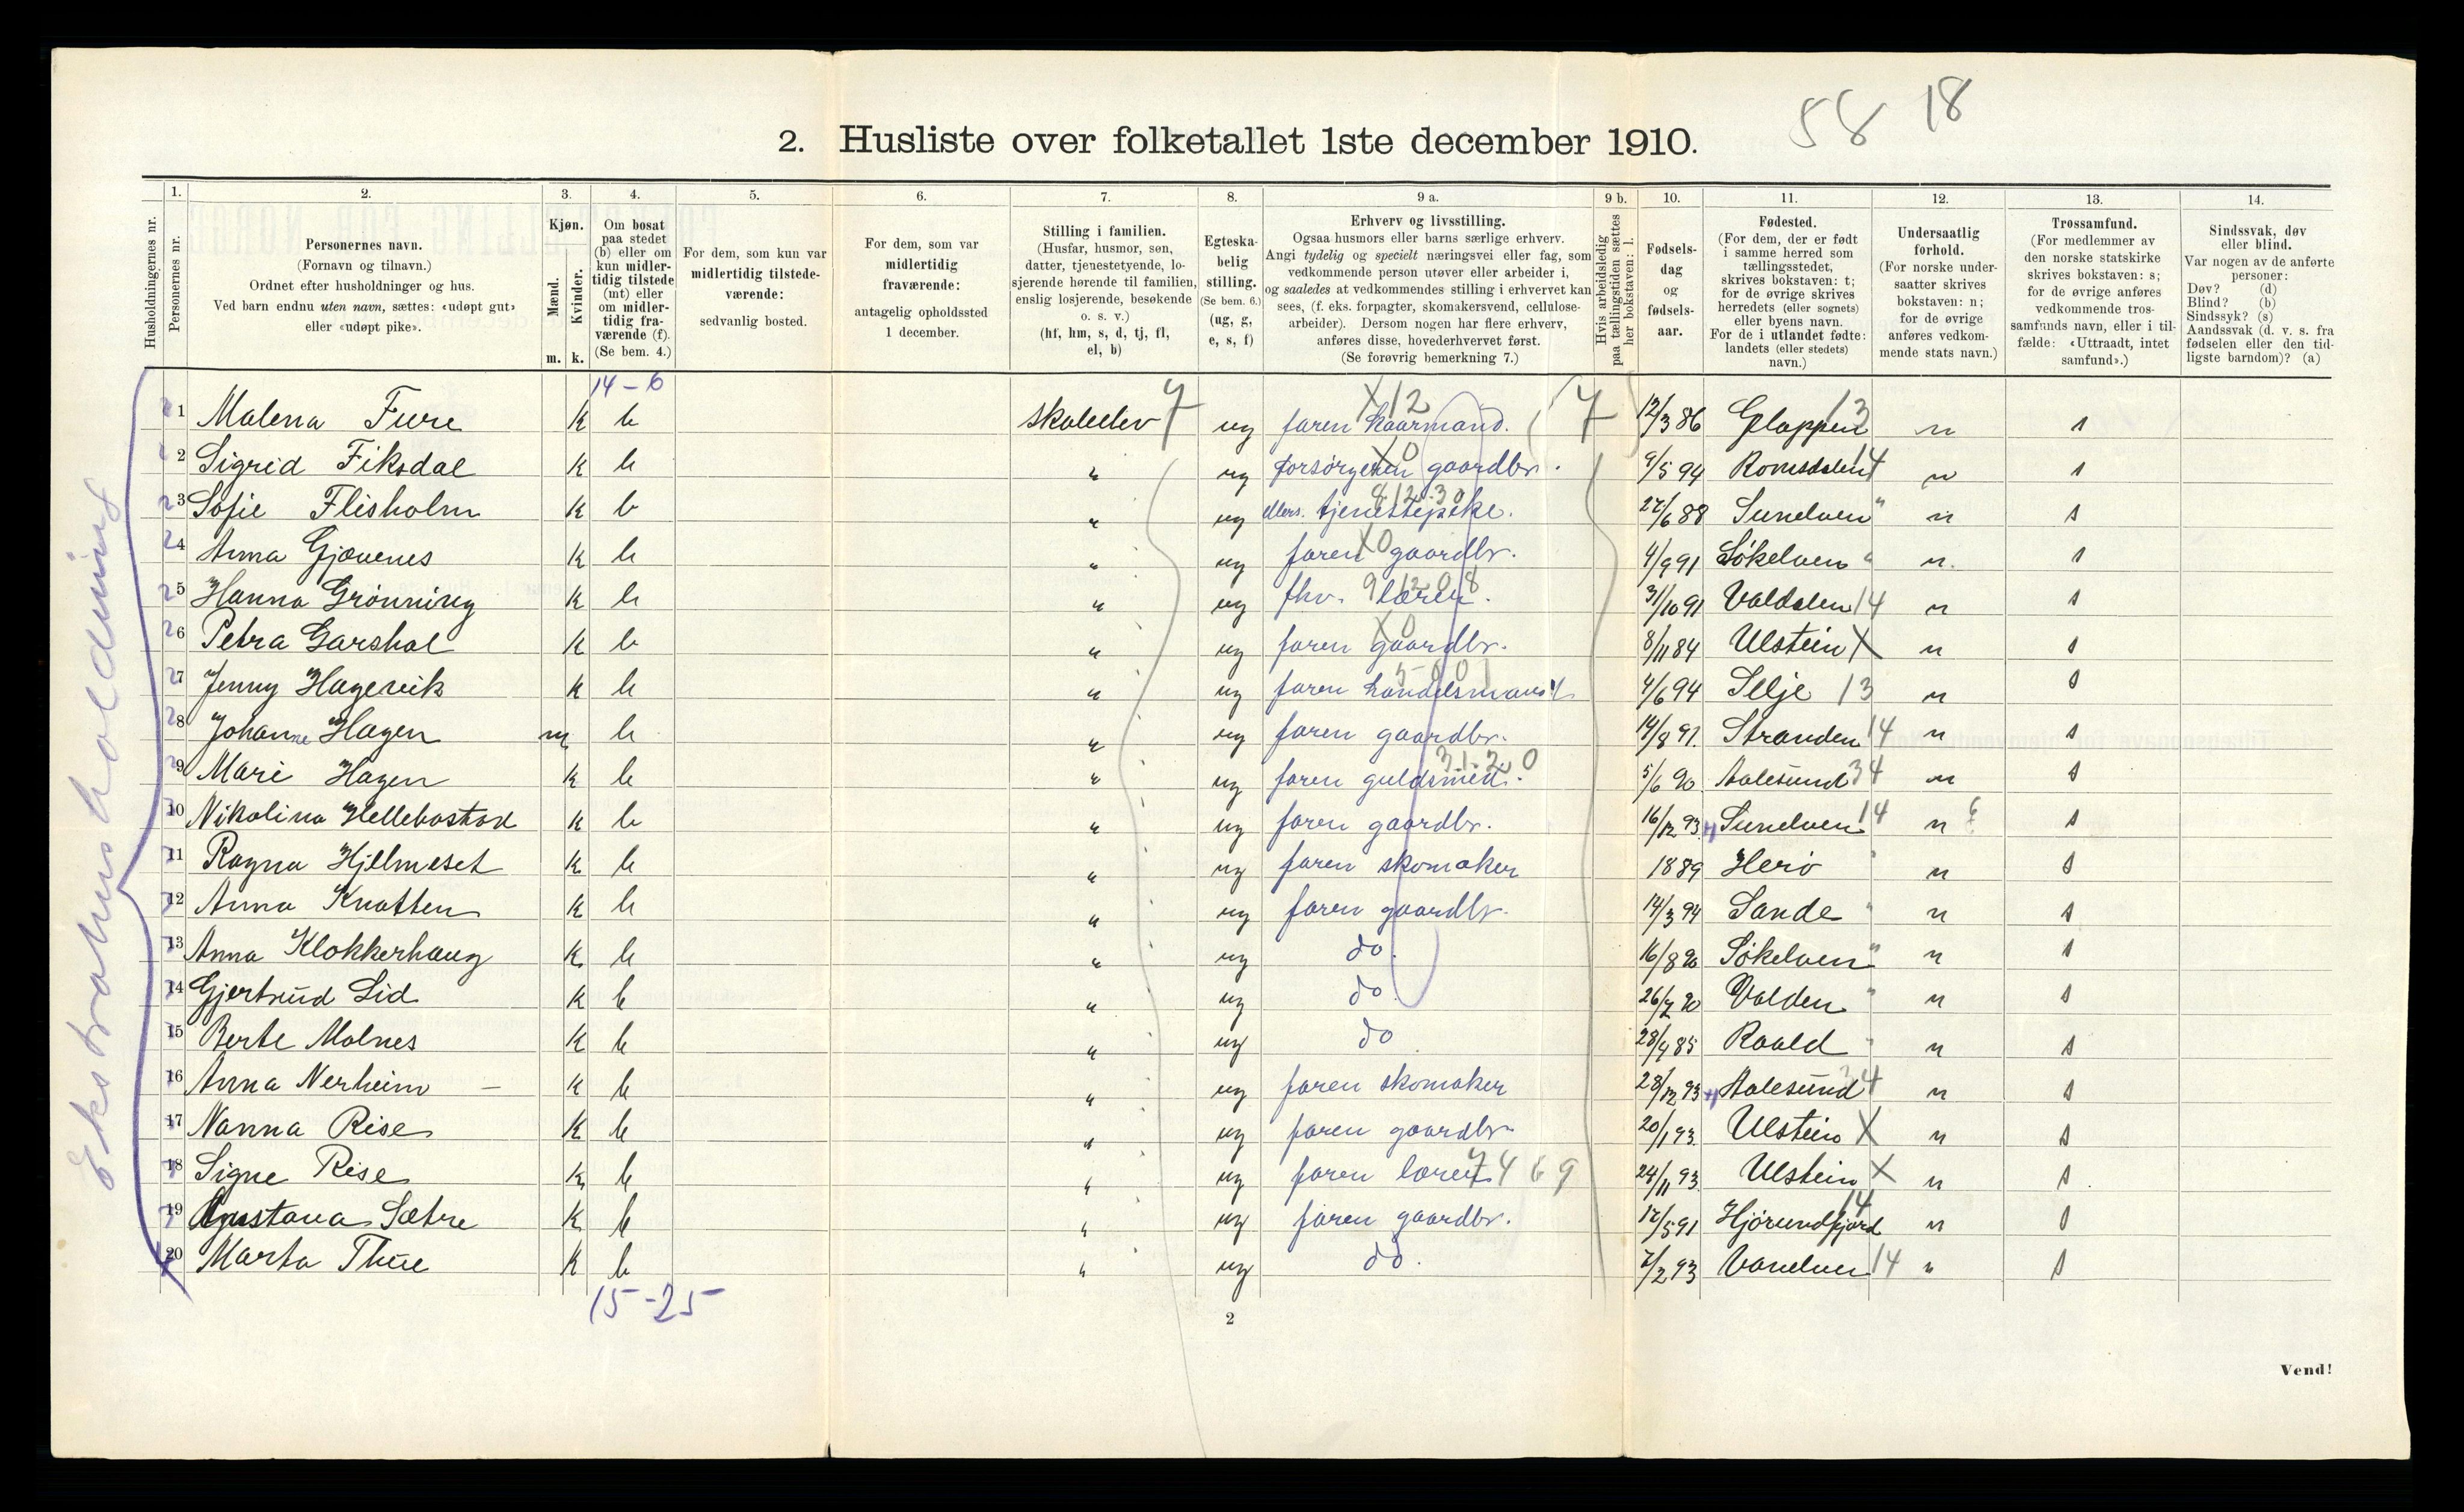 58 18
2. Husliste over folketallet 1ste december 1910.
Husholdningernes nr.
1.
Personernes nr.
2.
Personernes navn.
(Fornavn og tilnavn.)
Ordnet efter husholdninger og hus.
Ved barn endnu uten navn, sættes: «udøpt gut»
eller «udøpt pike».
3.
Kjøn.
Mænd.
Kvinder.
m. k.
4.
Om bosat
paa stedet
(b) eller om
kun midler-
tidig tilstede
(mt) eller
om midler-
tidig fra-
værende (f).
(Se bem. 4.)
5.
For dem, som kun var
midlertidig tilstede-
værende:
sedvanlig bosted.
6.
For dem, som var
midlertidig
fraværende:
antagelig opholdssted
1 december.
7.
Stilling i familien.
(Husfar, husmor, søn,
datter, tjenestetyende, lo-
sjerende hørende til familien,
enslig losjerende, besøkende
o. s. v.)
(hf, hm, s, d, tj, fl,
el, b)
8.
Egteska-
belig
stilling.
(Se bem. 6.)
(ug, g,
e, s, f)
9 a.
Erhverv og livsstilling.
Ogsaa husmors eller barns særlige erhverv.
Angi tydelig og specielt næringsvei eller fag, som
vedkommende person utøver eller arbeider i,
og saaledes at vedkommendes stilling i erhvervet kan
sees, (f. eks. forpagter, skomakersvend, cellulose-
arbeider). Dersom nogen har flere erhverv,
anføres disse, hovederhvervet først.
(Se forøvrig bemerkning 7.)
9 b.
Hvis arbeidsledig
paa tællingstiden sættes
her bokstaven: l.
10.
Fødsels-
dag
og
fødsels-
aar.
11.
Fødested.
(For dem, der er født
i samme herred som
tællingsstedet,
skrives bokstaven: t;
for de øvrige skrives
herredets (eller sognets)
eller byens navn.
For de i utlandet fødte:
landets (eller stedets)
navn.)
12.
Undersaatlig
forhold.
(For norske under-
saatter skrives
bokstaven: n;
for de øvrige
anføres vedkom-
mende stats navn.)
13.
Trossamfund.
(For medlemmer av
den norske statskirke
skrives bokstaven: s;
for de øvrige anføres
vedkommende tros-
samfunds navn, eller i til-
fælde: «Uttraadt, intet
samfund».)
14.
Sindssvak, døv
eller blind.
Var nogen av de anførte
personer:
Døv? (d)
Blind? (b)
Sindssyk? (s)
Aandssvak (d. v. s. fra
fødselen eller den tid-
ligste barndom)? (a)
Ekstrahusholdning
14-6
1 Malena Fure k b skoleelev 7 ug faren kaarmand. X12 7 12/3 86 Gloppen 13 n s
2 Sigrid Fiksdal k b " ug forsørgeren gaardbr. X0 9/5 94 Romsdalen 14 n s
3 Sofie Flisholm k b " ug ellers tjenestepike. 8.12.30 27/6 88 Sunelven " n s
4 Anna Gjævenes k b " ug faren gaardbr. X0 4/9 91 Søkelven " n. s
5 Hanna Grönning k b " ug fhv. lærer. 91208 31/10 91 Valdalen 14 n s
6 Petra Garshol k b " ug faren gaardbr. X0 8/11 84 Ulstein X n s
7 Jenny Hagevik k b " ug faren handelsmand 4/6 94 Selje 13 n s
8 Johanne Hagen m b " ug faren gaardbr. 14/8 91. Stranden 14 n s
9 Mari Hagen k b " ug faren guldsmed. 31.20 5/6 90 Aalesund 34 n s
10 Nikolina Hellebostad k b " ug faren gaardbr. 16/12 93 Sunelven 14 n s
11 Ragna Hjelmeset k b " ug faren skomaker 1889 Herö " n s
12 Anna Knotten k b " ug faren gaardbr. 14/3 94 Sande " n s
13 Anna Klokkerhaug k b " ug do. 16/8 90 Søkelven " n s
14 Gjertrud Lid k b " ug do 26/7 90 Volden " n s
15 Berte Molnes k b " ug do 28/9 85 Roald " n s
16 Anna Nerheim - k b " ug faren skomaker 28/12 93 Aalesund 34 n s
17 Nanna Rise k b " ug faren gaardbr 20/1 93. Ulstein X n s
18 Signe Rise k b " ug faren lærer 7469 24/11 93. Ulstein X n s
19 Gustava Sætre k b " ug faren gaardbr. 12/5 91 Hjørundfjord 14 n s
20 Marta Thue k b " ug do. 7/2 93 Vanelven 14 n s
15-25
2
Vend!